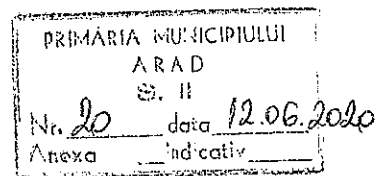 PRIMĂRIA MUNICIPIULUI
ARAD
S. II
Nr. 20 data 12.06.2020
Anexa indicativ